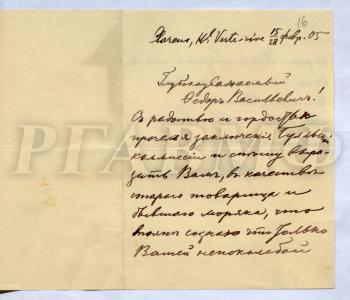 16
Clarens, Hôt. Verte-rive 15/28 февр. 05
Глубокоуважаемый
Ѳедоръ Васильевичъ!
Съ радостью и гордостью
прочелъ заключенія Гулльской
коммисіи и спѣшу выра-
зить Вамъ, въ качествѣ
стараго товарища и
бывшаго моряка, что
вполнѣ сознаю что только
Вашей непоколебимой
РГАВМФ